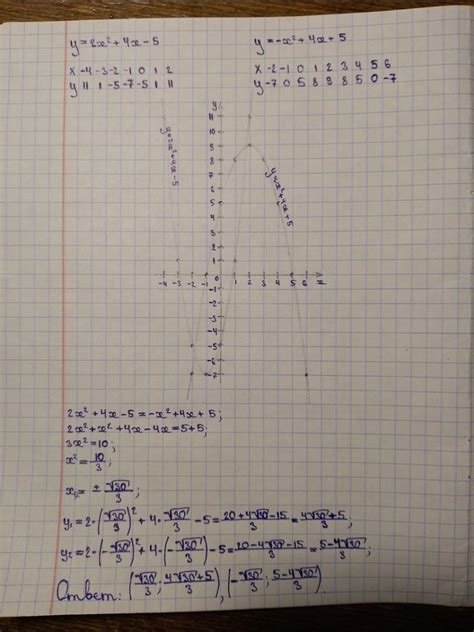 y=2x²+4x-5
y=-x²+4x+5
x -4 -3 -2 -1 0 1 2
y 11 1 -5 -7 -5 1 11
x -2 -1 0 1 2 3 4 5 6
y -7 0 5 8 9 8 5 0 -7
y
11
9
8
7
6
5
4
3
2
1
-4 -3 -2 -1 0 1 2 3 4 5 6 x
-1
-2
-3
-4
-5
-6
-7
y=2x²+4x-5
y=-x²+4x+5
2x²+4x-5=-x²+4x+5;
2x²+x²+4x-4x=5+5;
3x²=10;
x²=10/3;
x₁,₂=±√30/3;
y₁=2·(√30/3)²+4·√30/3-5=(20+4√30-15)/3=(4√30+5)/3;
y₂=2·(-√30/3)²+4·(-√30/3)-5=(20-4√30-15)/3=(5-4√30)/3;
Ответ: (√30/3; (4√30+5)/3), (-√30/3; (5-4√30)/3).